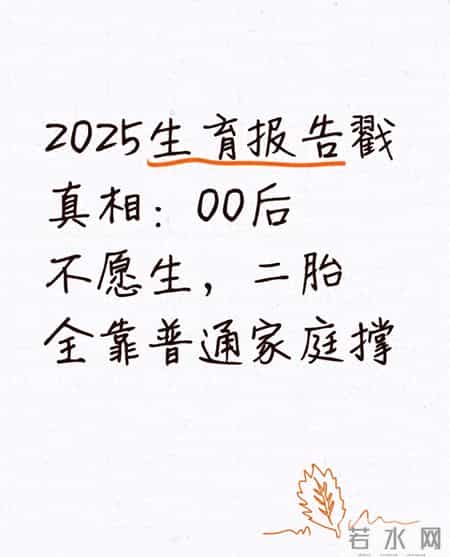 2025生育报告戳
真相：00后
不愿生，二胎
全靠普通家庭撑
若水网